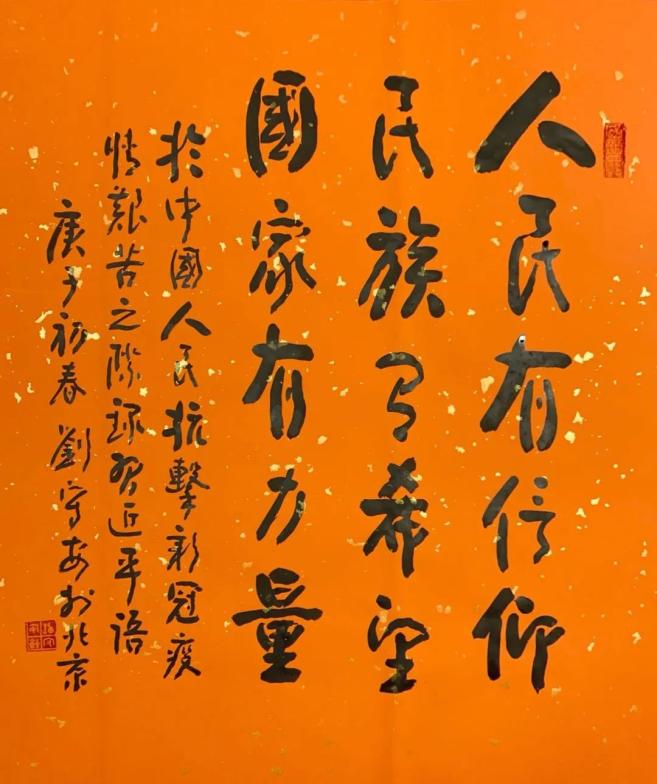 人民有信仰
民族有希望
國家有力量
於中國人民抗擊新冠疫
情艱苦之際録習近平语
庚子初春劉守安於北京